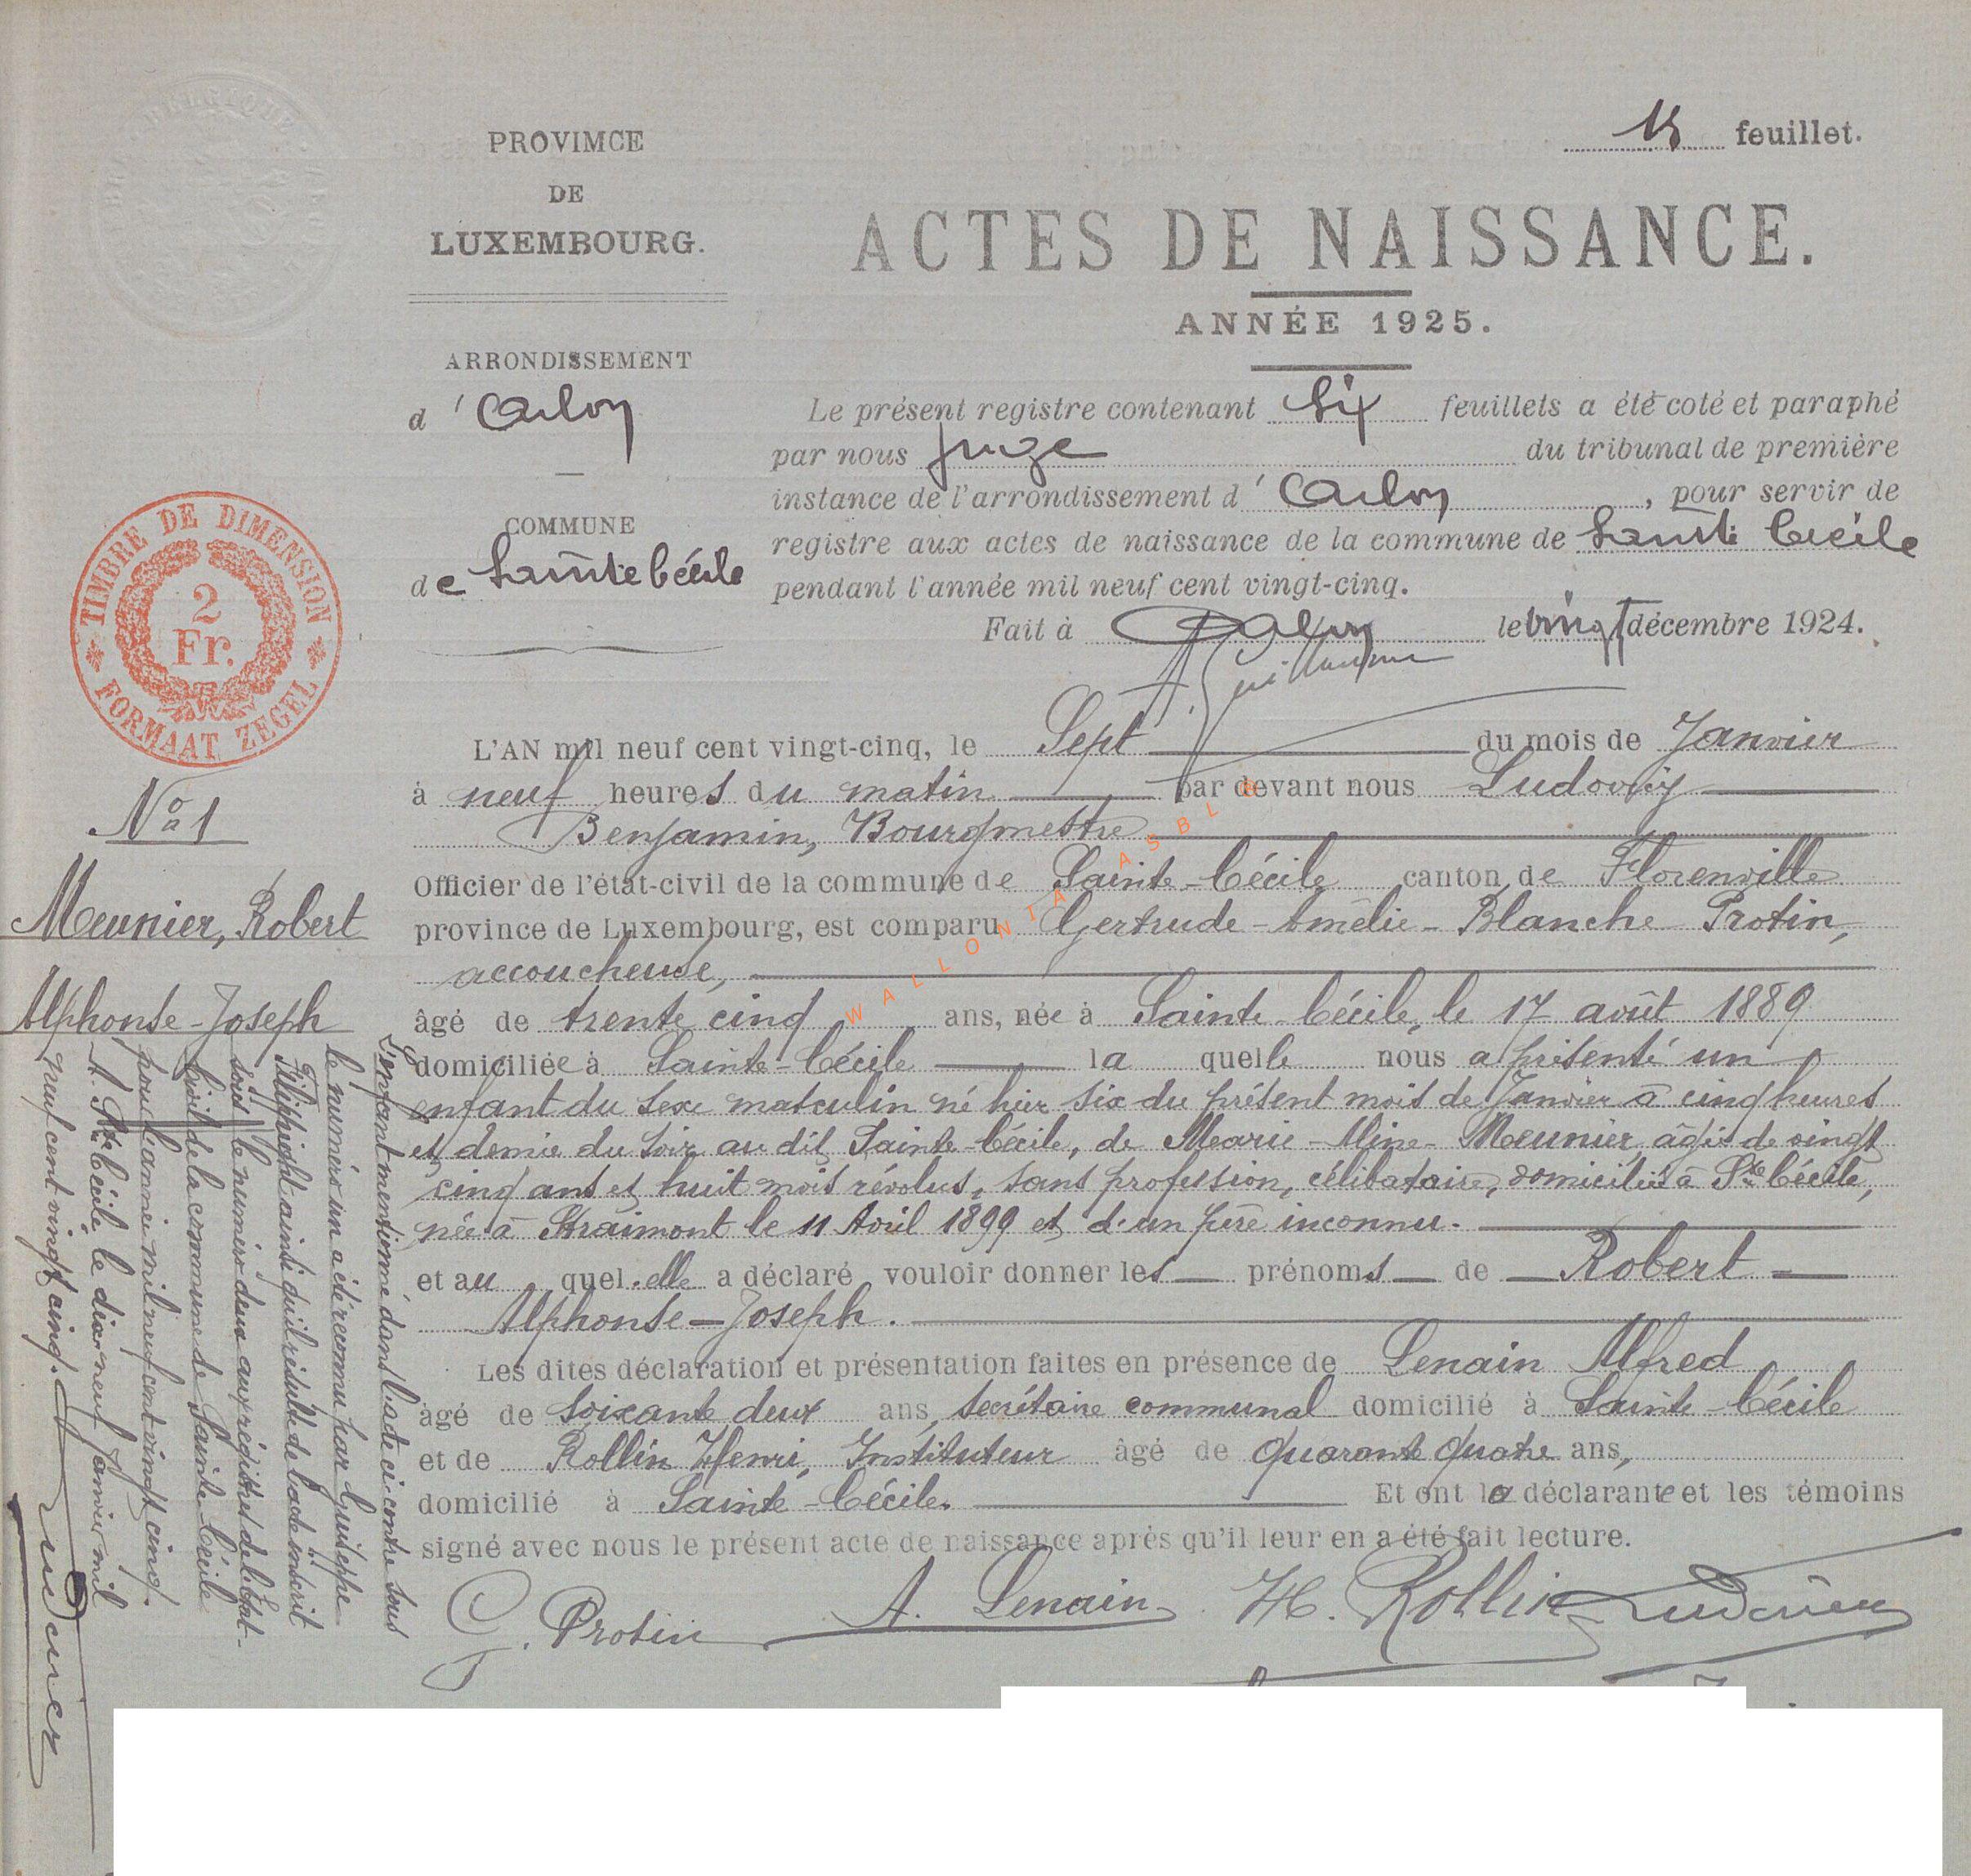 1r feuillet.
PROVIMCE
DE
LUXEMBOURG.
ARRONDISSEMENT
d'Arlon
COMMUNE
de Sainte Cécile
ACTES DE NAISSANCE.
ANNÉE 1925.
Le présent registre contenant six feuillets a été coté et paraphé
par nous juge du tribunal de première
instance de l'arrondissement d'Arlon, pour servir de
registre aux actes de naissance de la commune de Sainte Cécile
pendant l'année mil neuf cent vingt-cinq.
Fait à Arlon le vingt décembre 1924.
TIMBRE DE DIMENSION
2
Fr.
FORMAAT ZEGEL
No 1
Meunier, Robert
Alphonse-Joseph
L'enfant mentionné dans l'acte ci-contre sous
le numéro un a été reconnu par Guiseppe
Filippight ainsi qu'il résulte de l'acte inscrit
sous le numéro deux aux registres de l'Etat-
Civil de la commune de Sainte-Cécile
pour l'année mil neuf cent vingt cinq.
A Ste Cécile le dix neuf Janvier mil
neuf cent vingt cinq.
L'AN mil neuf cent vingt-cinq, le Sept du mois de Janvier
à neuf heures du matin par devant nous Ludovicy
Benjamin, Bourgmestre
Officier de l'état-civil de la commune de Sainte-Cécile canton de Florenville
province de Luxembourg, est comparu Gertrude-Amélie-Blanche Protin,
accoucheuse,
âgé de trente cinq ans, née à Sainte-Cécile, le 17 août 1889
domiciliée à Sainte-Cécile la quelle nous a présenté un
enfant du sexe masculin né hier six du présent mois de Janvier à cinq heures
et demie du soir au dit Sainte-Cécile, de Marie-Aline-Meunier âgée de vingt
cinq ans et huit mois révolus, sans profession, célibataire, domiciliée à Ste Cécile,
née à Straimont le 11 Avril 1899 et d'un père inconnu.
et au quel elle a déclaré vouloir donner les prénoms de Robert
Alphonse-Joseph.
Les dites déclaration et présentation faites en présence de Lenain Alfred
âgé de soixante deux ans, secrétaire communal domicilié à Sainte-Cécile
et de Rollin Henri, Instituteur âgé de quarante quatre ans,
domicilié à Sainte-Cécile. Et ont la déclarante et les témoins
signé avec nous le présent acte de naissance après qu'il leur en a été fait lecture.
G. Protin A. Lenain H. Rollin Ludovicy
WALLONIA ASBL